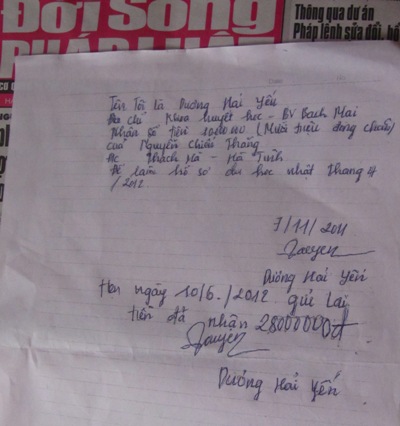 Đời Sống
PHÁP LUẬT
Thông qua dự án
Pháp lệnh sửa đổi, bổ
Tên Tôi là Dương Hải Yến
Địa chỉ Khoa huyết học - BV Bạch Mai
Nhận số tiền 10.000.000 (Mười triệu đồng chẵn)
của Nguyễn Chiến Thắng
Đc Thạch Hà - Hà Tĩnh
Để làm hồ sơ du học nhật Tháng 4
/2012
7/11/2011
Dương Hải Yến
Hẹn ngày 10/6./2012 gửi lại
tiền đã nhận 28000000đ
Dương Hải Yến